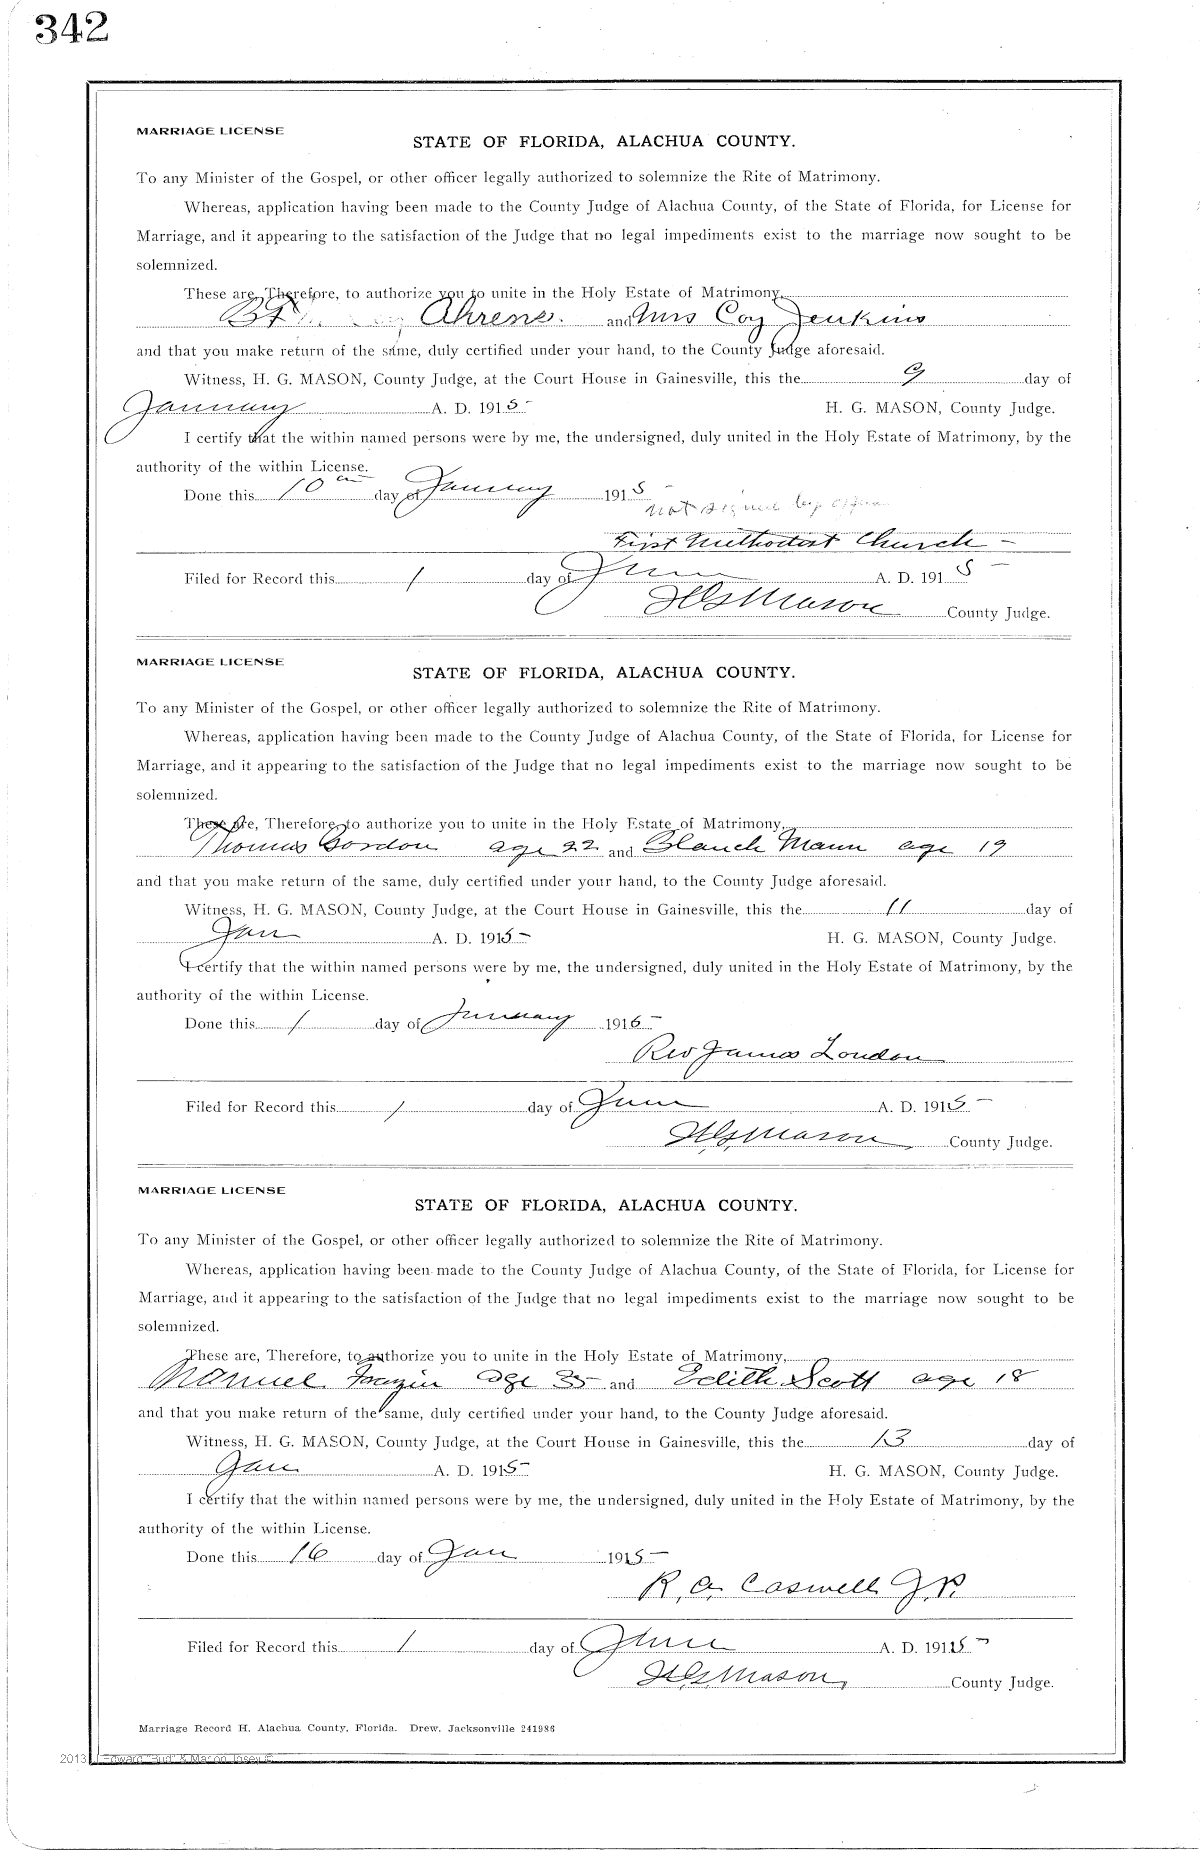 342
MARRIAGE LICENSE
STATE OF FLORIDA, ALACHUA COUNTY.
To any Minister of the Gospel, or other officer legally authorized to solemnize the Rite of Matrimony.
Whereas, application having been made to the County Judge of Alachua County, of the State of Florida, for License for
Marriage, and it appearing to the satisfaction of the Judge that no legal impediments exist to the marriage now sought to be
solemnized.
These are, Therefore, to authorize you to unite in the Holy Estate of Matrimony,
Ahrens. and Mrs Coy Jenkins
and that you make return of the same, duly certified under your hand, to the County Judge aforesaid.
Witness, H. G. MASON, County Judge, at the Court House in Gainesville, this the 9 day of
January A. D. 1915 H. G. MASON, County Judge.
I certify that the within named persons were by me, the undersigned, duly united in the Holy Estate of Matrimony, by the
authority of the within License.
Done this 10 day of January 1915
not signed by
First Methodist Church
Filed for Record this 1 day of June A. D. 1915
H G Mason County Judge.
MARRIAGE LICENSE
STATE OF FLORIDA, ALACHUA COUNTY.
To any Minister of the Gospel, or other officer legally authorized to solemnize the Rite of Matrimony.
Whereas, application having been made to the County Judge of Alachua County, of the State of Florida, for License for
Marriage, and it appearing to the satisfaction of the Judge that no legal impediments exist to the marriage now sought to be
solemnized.
These are, Therefore, to authorize you to unite in the Holy Estate of Matrimony,
Thomas Gordon age 22 and Blanch Mann age 19
and that you make return of the same, duly certified under your hand, to the County Judge aforesaid.
Witness, H. G. MASON, County Judge, at the Court House in Gainesville, this the 11 day of
Jan A. D. 1915 H. G. MASON, County Judge.
I certify that the within named persons were by me, the undersigned, duly united in the Holy Estate of Matrimony, by the
authority of the within License.
Done this 1 day of January 1915
Rev James London
Filed for Record this 1 day of June A. D. 1915
H. G. Mason County Judge.
MARRIAGE LICENSE
STATE OF FLORIDA, ALACHUA COUNTY.
To any Minister of the Gospel, or other officer legally authorized to solemnize the Rite of Matrimony.
Whereas, application having been made to the County Judge of Alachua County, of the State of Florida, for License for
Marriage, and it appearing to the satisfaction of the Judge that no legal impediments exist to the marriage now sought to be
solemnized.
These are, Therefore, to authorize you to unite in the Holy Estate of Matrimony,
Manuel Frazier age 35 and Edith Scott age 18
and that you make return of the same, duly certified under your hand, to the County Judge aforesaid.
Witness, H. G. MASON, County Judge, at the Court House in Gainesville, this the 13 day of
Jan A. D. 1915 H. G. MASON, County Judge.
I certify that the within named persons were by me, the undersigned, duly united in the Holy Estate of Matrimony, by the
authority of the within License.
Done this 16 day of Jan 1915
R. A. Caswell J. P.
Filed for Record this 1 day of June A. D. 1915
H. G. Mason, County Judge.
Marriage Record H, Alachua County, Florida. Drew, Jacksonville 241986
2013